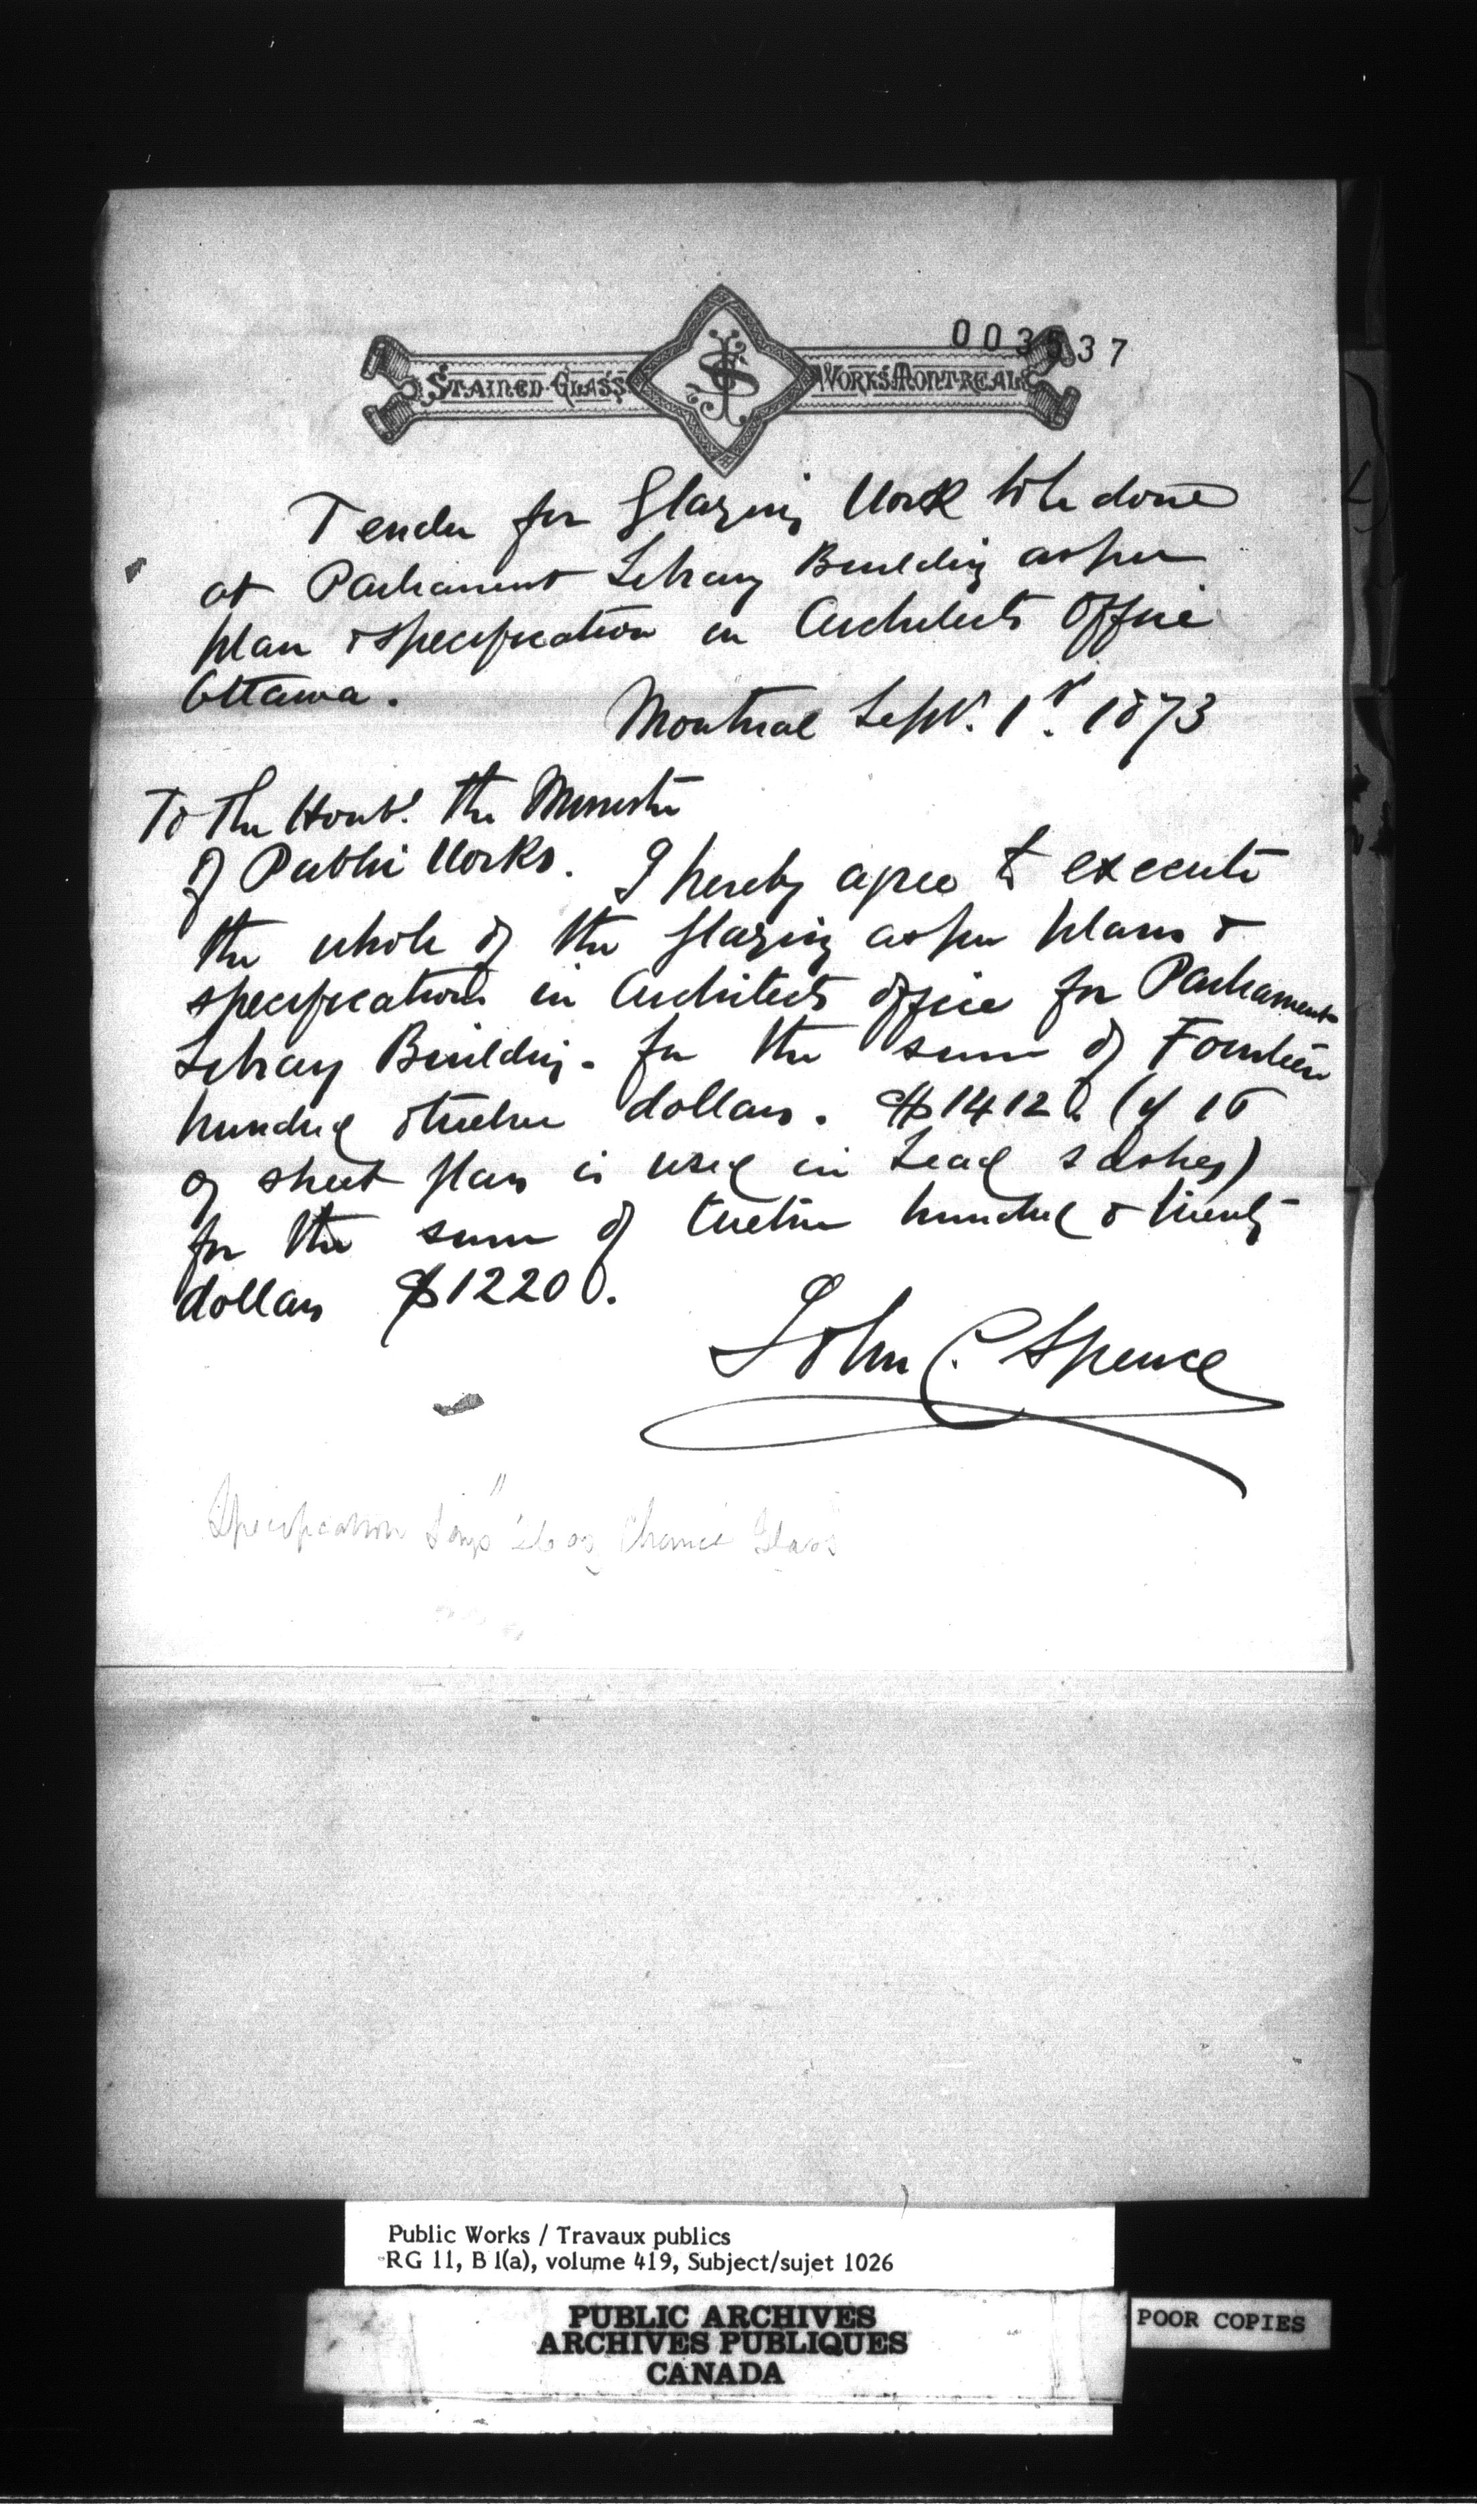 003537
STAINED GLASS WORKS MONTREAL
Tender for Glazing Work to be done
at Parliament Library Building as per
plan & specification in Architects Office
Ottawa.
Montreal Sept. 1st. 1873
To the Honbl. the Minister
of Public Works.
I hereby agree to execute
the whole of the glazing as per plans &
specifications in Architects office for Parliament
Library Building. for the sum of Fourteen
hundred & twelve dollars. $1412. (if 16
oz sheet glass is used in Lead sashes)
for the sum of twelve hundred & twenty
dollars $1220.
John C. Spence
Specification says " oz Chance Glass
Public Works / Travaux publics
RG 11, B 1(a), volume 419, Subject/sujet 1026
PUBLIC ARCHIVES
ARCHIVES PUBLIQUES
CANADA
POOR COPIES